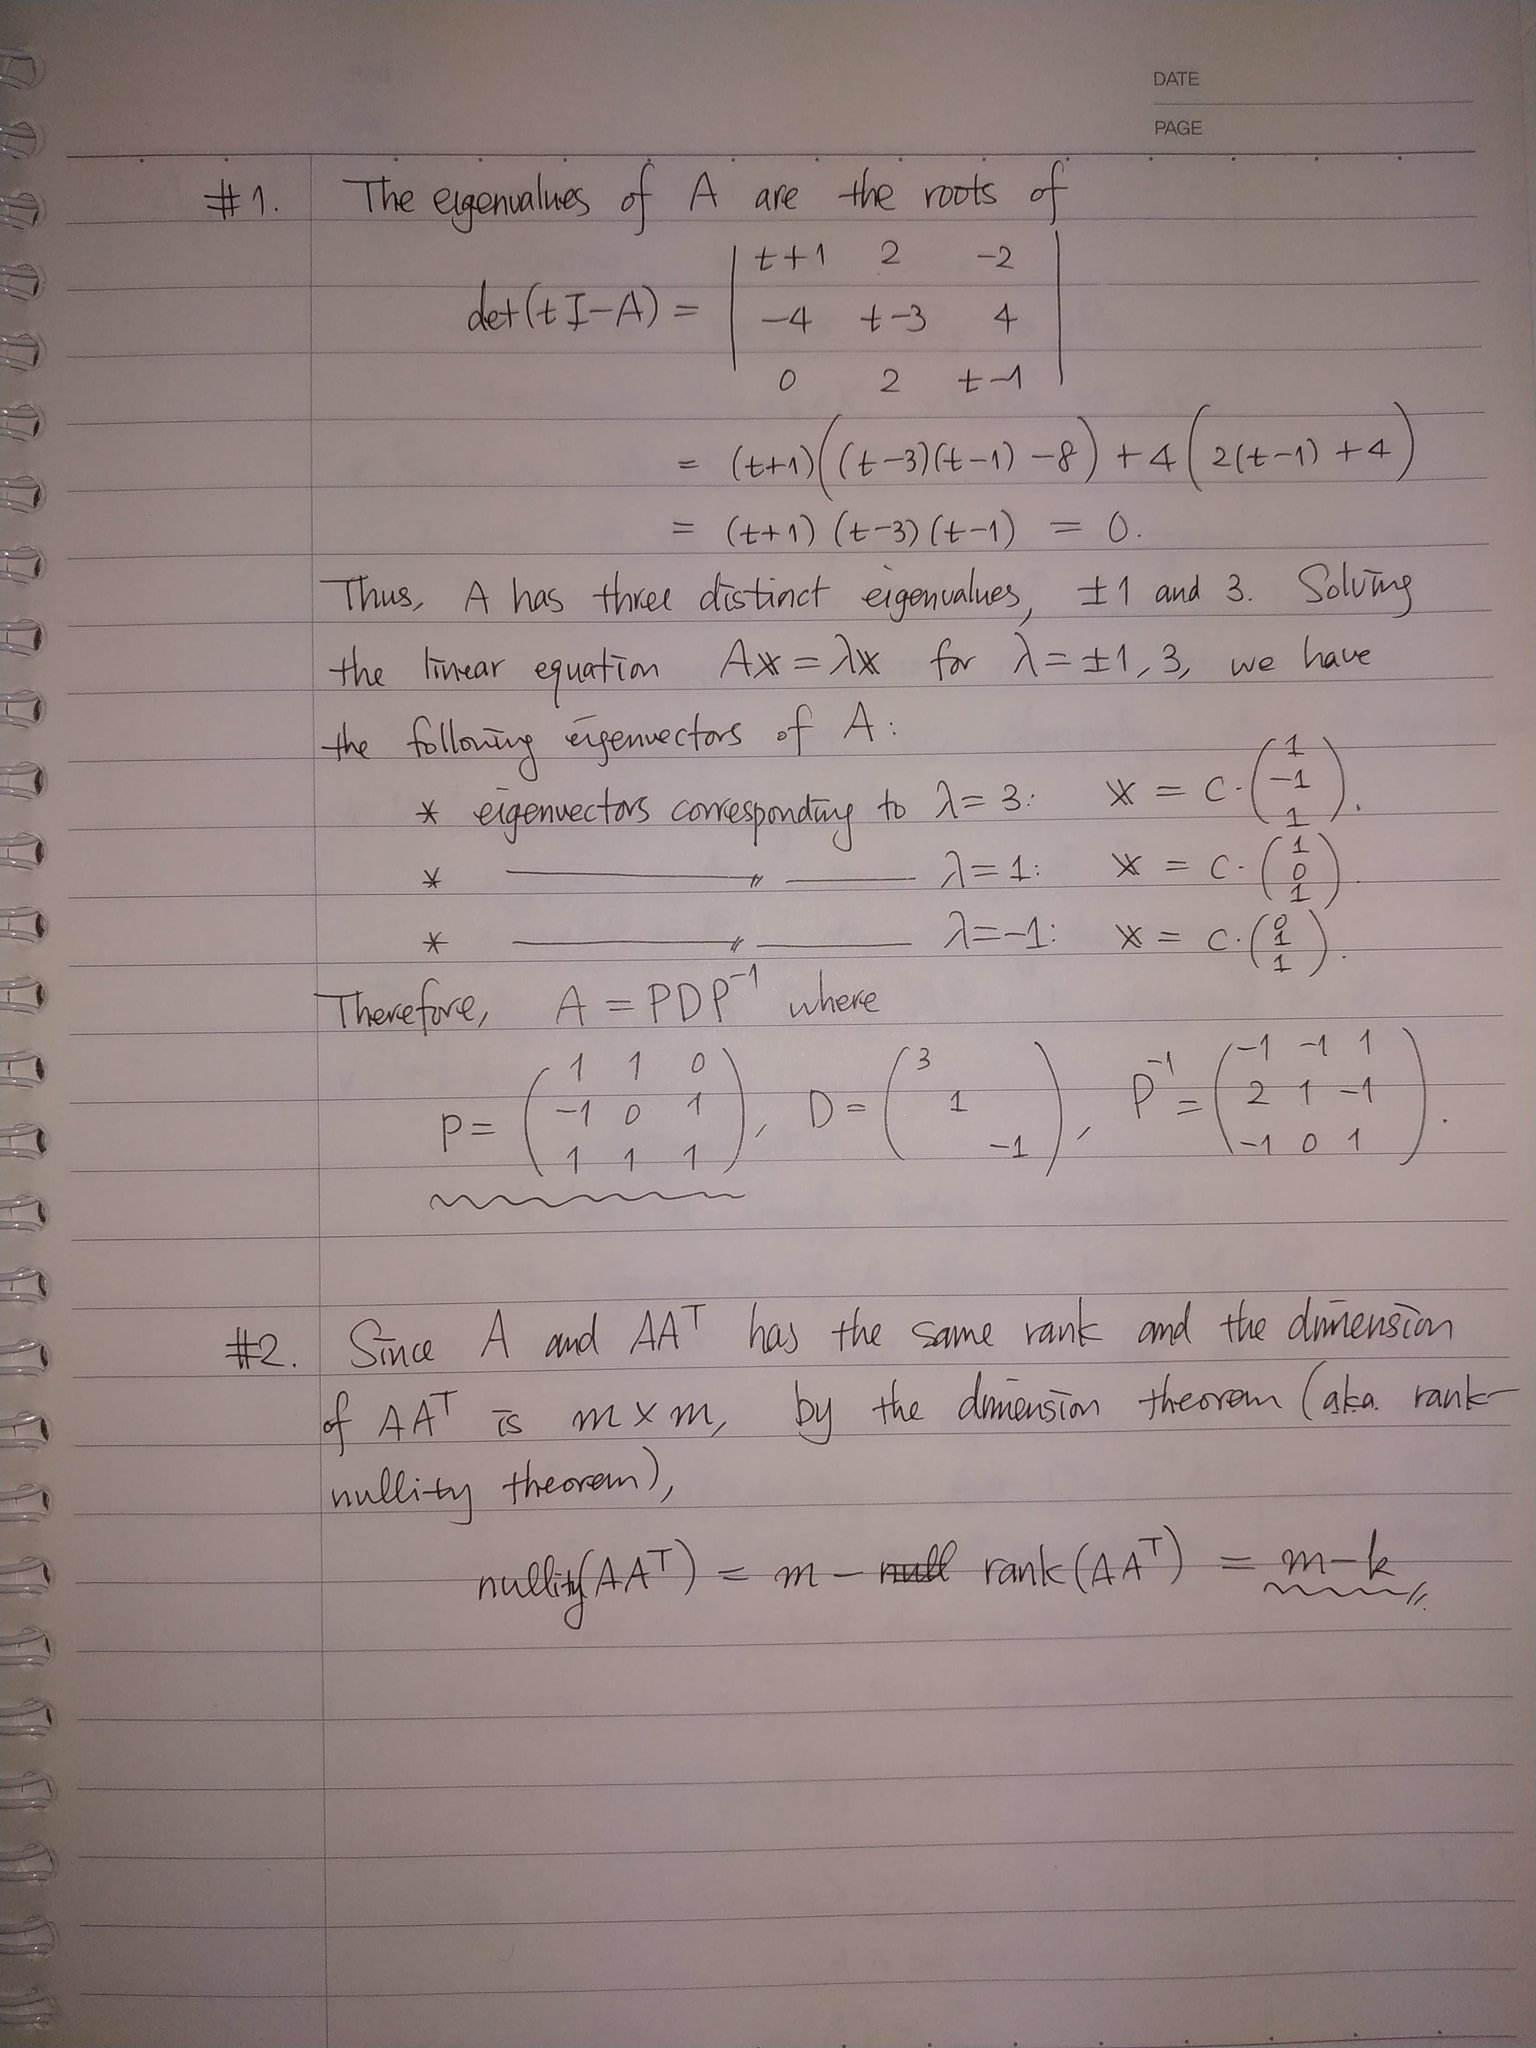 DATE
PAGE
#1. The eigenvalues of A are the roots of
det(tI-A) = | t+1 2 -2 |
| -4 t-3 4 |
| 0 2 t-1 |
= (t+1)((t-3)(t-1) -8) +4(2(t-1) +4)
= (t+1)(t-3)(t-1) = 0.
Thus, A has three distinct eigenvalues, ±1 and 3. Solving
the linear equation Ax = λx for λ = ±1, 3, we have
the following eigenvectors of A:
* eigenvectors corresponding to λ = 3: x = c·(1 -1 1).
* —— 〃 —— λ = 1: x = c·(1 0 1).
* —— 〃 —— λ = -1: x = c·(0 1 1).
Therefore, A = PDP⁻¹ where
P = (1 1 0
-1 0 1
1 1 1), D = (3
1
-1), P⁻¹ = (-1 -1 1
2 1 -1
-1 0 1).
#2. Since A and AAᵀ has the same rank and the dimension
of AAᵀ is m×m, by the dimension theorem (aka. rank-
nullity theorem),
nullity(AAᵀ) = m - null rank(AAᵀ) = m-k